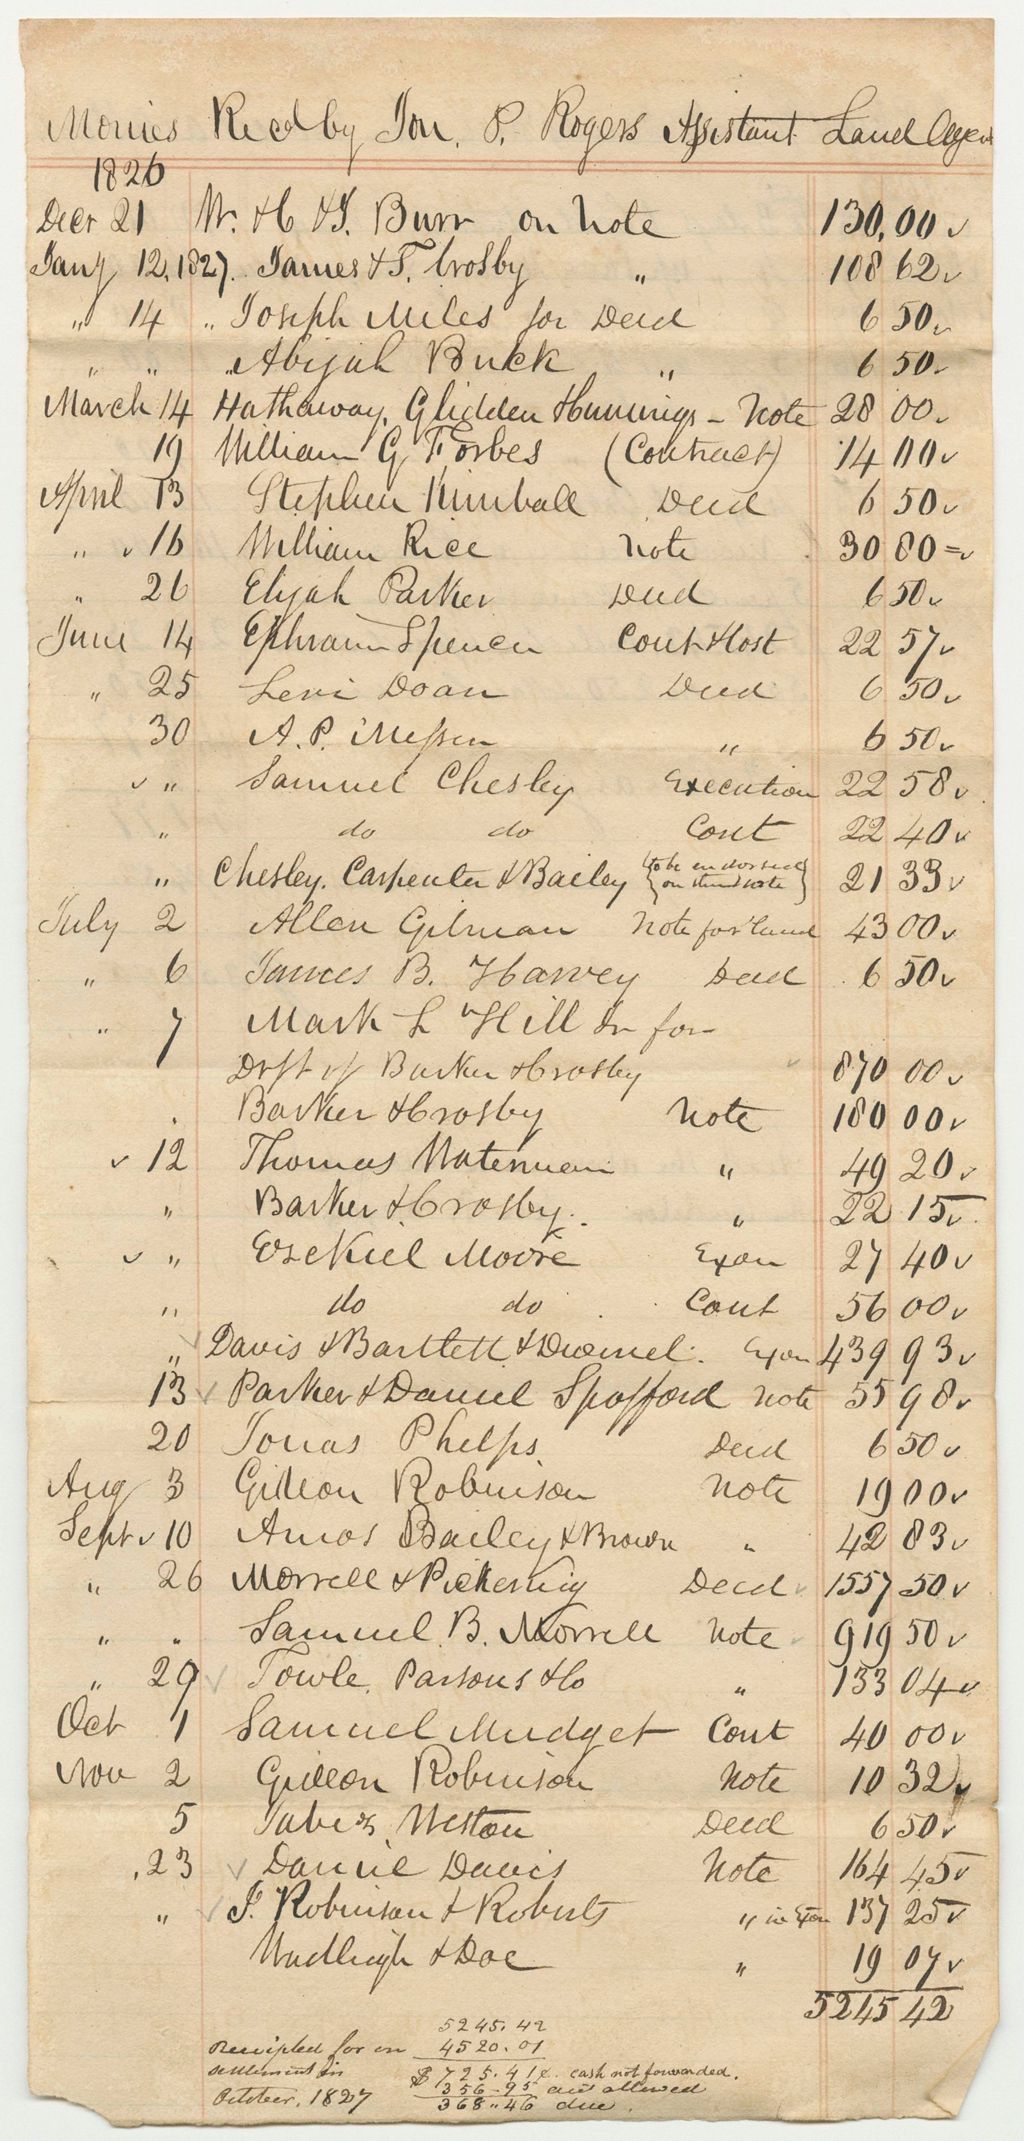 Monies Recd by Jon. P. Rogers Assistant Land Agent
1826
Decr 21 W. H C & J. Burr on Note 130,00 v
Jany 12, 1827. James & T. Crosby " 108 62 v
" 14 " Joseph Miles for Deed 6 50 v
" " " Abijah Buck " 6 50 v
March 14 Hathaway, Glidden Hunnings - Note 28 00 v
19 William G Forbes (Contract) 14 00 v
April 13 Stephen Kimball Deed 6 50 v
" v 16 William Rice Note 30 80 = v
" 26 Elijah Parker Deed 6 50 v
June 14 Ephraim Spencer Cont & Cost 22 57 v
" 25 Levi Doan Deed 6 50 v
30 A. P. Messer " 6 50 v
v " Samuel Chesley Execution 22 58 v
" do do Cont 22 40 v
" Chesley. Carpenter & Bailey {to be endorsed on their note} 21 33 v
July 2 Allen Gilman Note for land 43 00 v
" 6 James B. Harvey Deed 6 50 v
" 7 Mark L Hill for
Drft of Barker & Crosby 870 00 v
Barker & Crosby Note 180 00 v
v 12 Thomas Waterman " 49 20 v
" Barker & Crosby. " 22 15 v
v " Ezekiel Moore Exon 27 40 v
" do do Cont 56 00 v
" Davis & Bartlett & Dwinel. Exon 439 93 v
13 v Parker & Daniel Spofford Note 55 98 v
20 Jonas Phelps Deed 6 50 v
Aug 3 Gideon Robinson Note 19 00 v
Sept v 10 Amos Bailey & Brown " 42 83 v
" 26 Morrell & Pickering Deed v 1557 50 v
" " Samuel B. Morrell Note v 919 50 v
" 29 v Towle, Parsons & Co " 133 04 v
Oct 1 Samuel Mudget Cont 40 00 v
Nov 2 Gideon Robinson Note 10 32 v
5 Jabez Weston Deed 6 50 v
23 v Daniel Davis Note 164 45 v
" v J. Robinson & Roberts " in Exon 137 25 v
Wadleigh & Doe " 19 07 v
5245 42
5245.42
Receipted for on 4520.01
settlement in $725.41 c. cash not forwarded.
October, 1827 356-95 acct allowed
368.46 due.